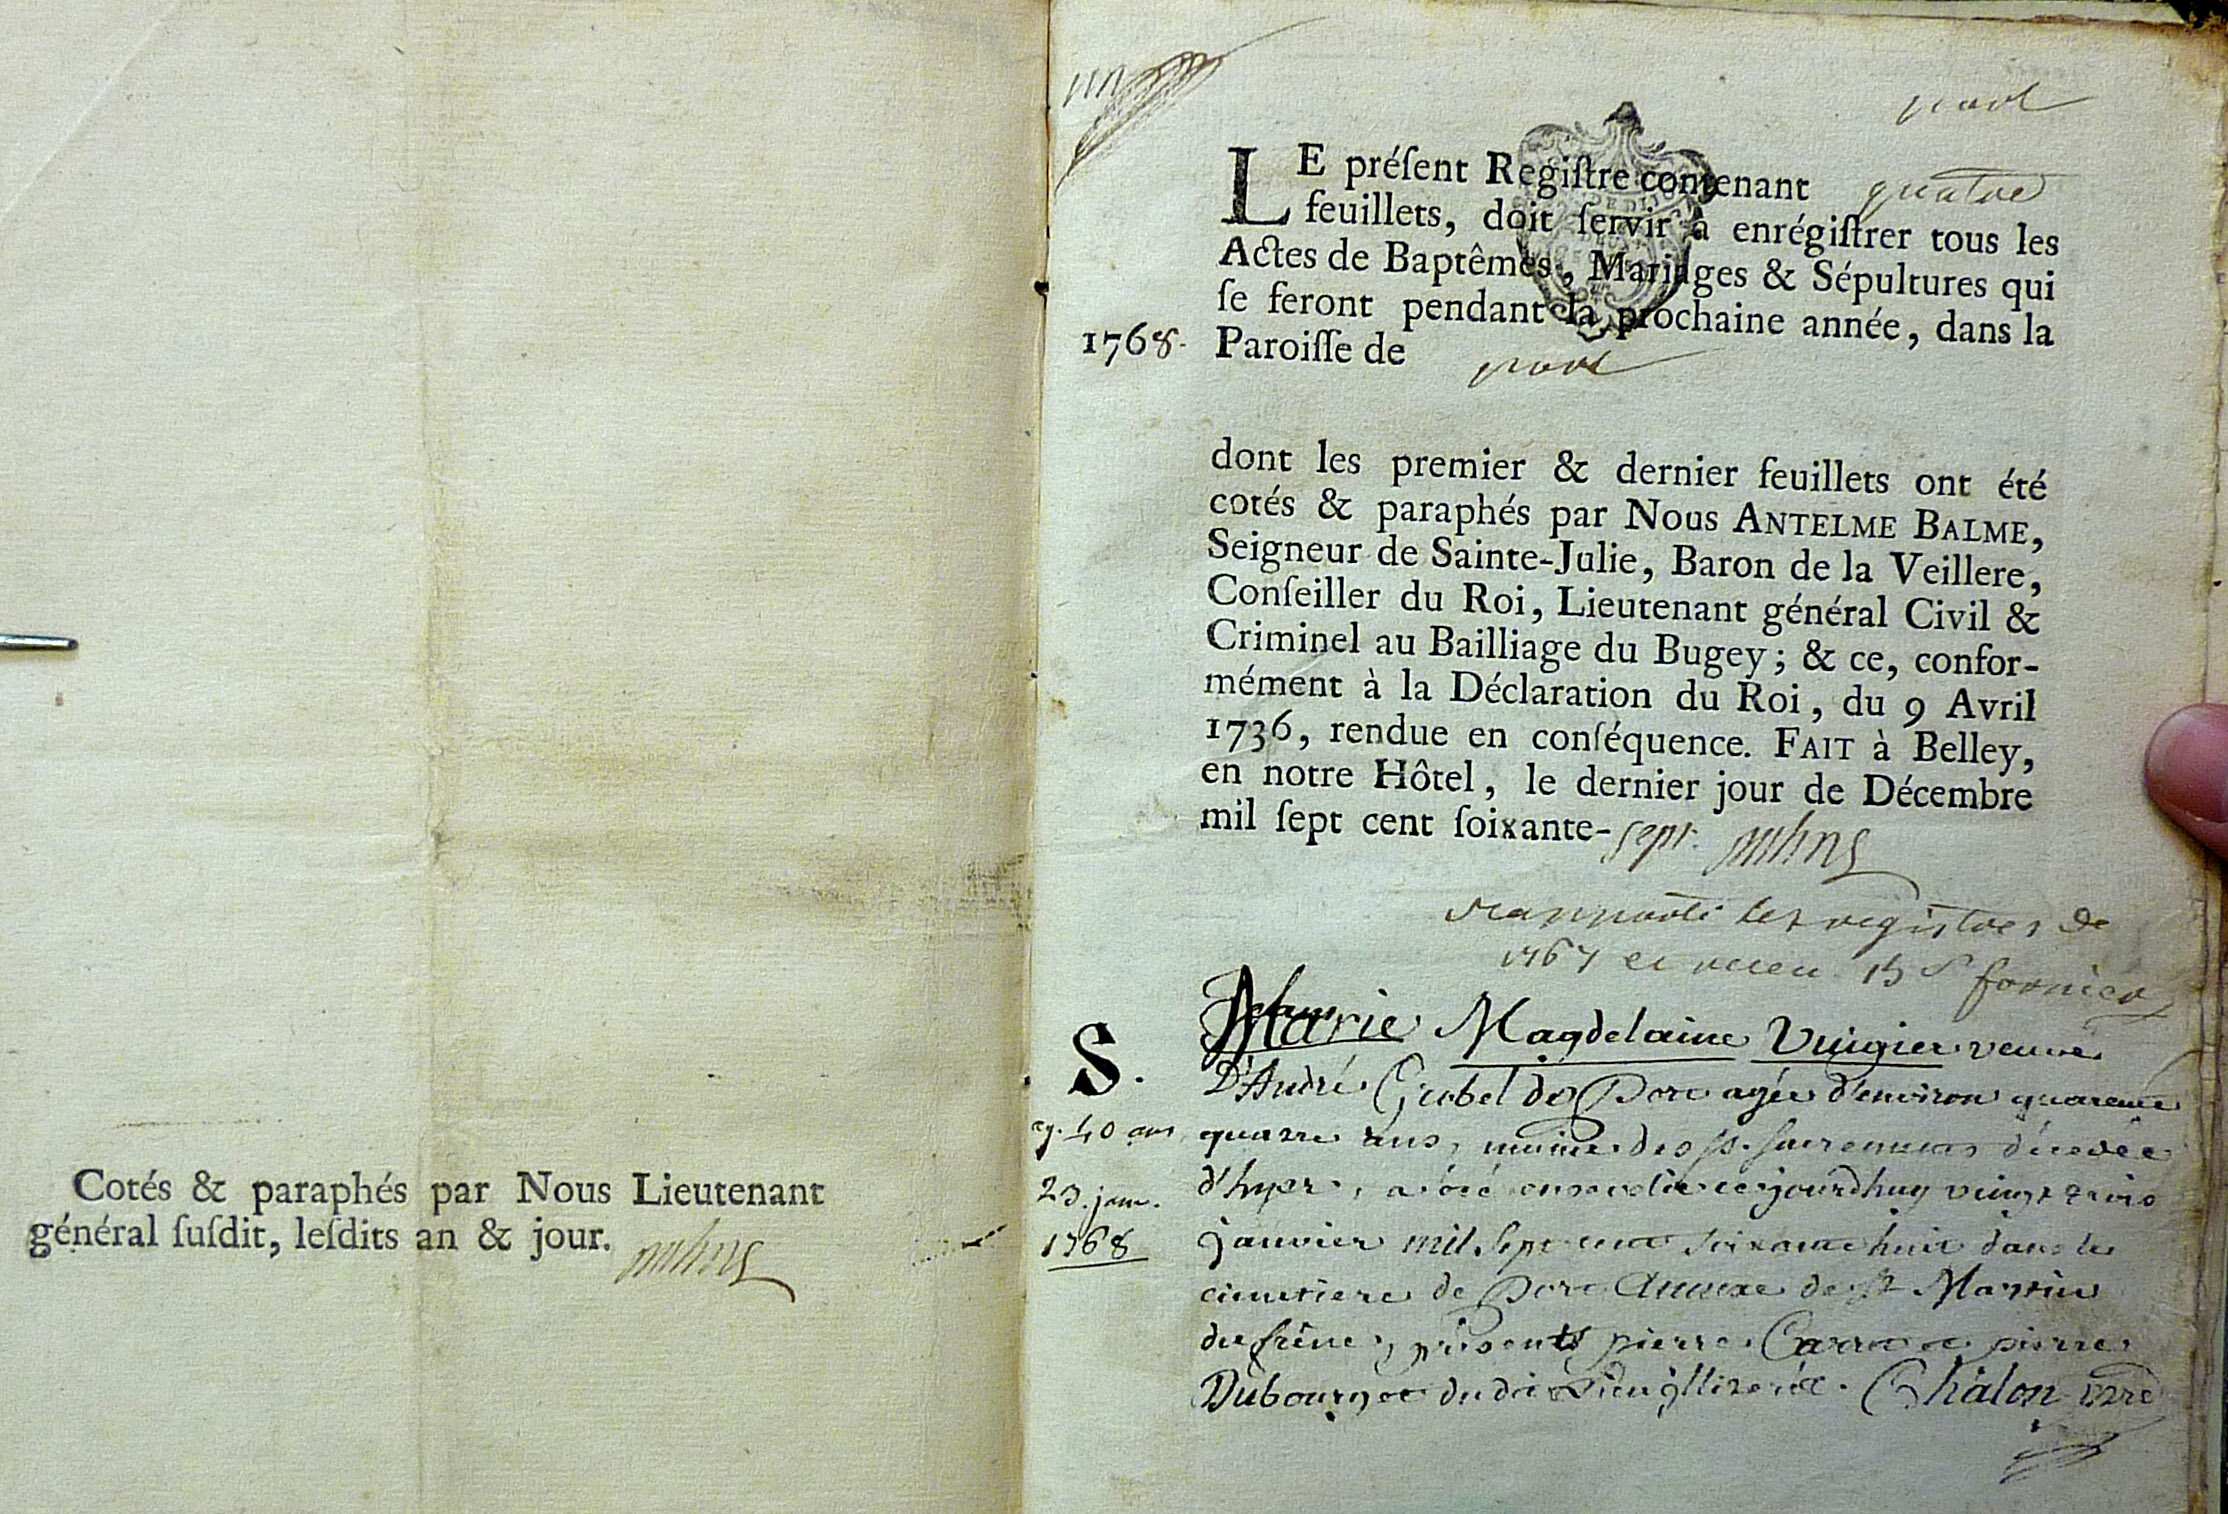 Cotés & paraphés par Nous Lieutenant
général ſuſdit, leſdits an & jour.
un
port
LE préſent Regiſtre contenant quatre
feuillets, doit ſervir à enrégiſtrer tous les
Actes de Baptêmes, Mariages & Sépultures qui
ſe feront pendant la prochaine année, dans la
1768. Paroiſſe de port
dont les premier & dernier feuillets ont été
cotés & paraphés par Nous ANTELME BALME,
Seigneur de Sainte-Julie, Baron de la Veillere,
Conſeiller du Roi, Lieutenant général Civil &
Criminel au Bailliage du Bugey; & ce, confor-
mément à la Déclaration du Roi, du 9 Avril
1736, rendue en conſéquence. FAIT à Belley,
en notre Hôtel, le dernier jour de Décembre
mil ſept cent ſoixante-sept.
rapporté les registres de
1767 et receu 15 s fornier
Marie Magdelaine Vuigier veuve
S. D'André Gobel de Port agée d'environ quarente
ag. 40 ans quatre ans, munie des ss. sacrements décedée
23. janv. d'hyer, a été ensevelie cejourdhuy vingt trois
1768 janvier mil sept cent soixante huit dans le
cimetiere de Port Annexe de St Martin
du frêne, présents pierre et pierre
Dubourget dudit Lieu illiteré. Châlon vire